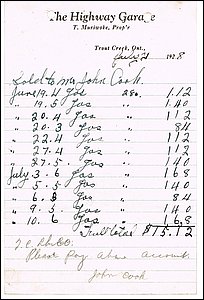 The Highway Garage
T. Muriwoke, Prop'r
Trout Creek, Ont., July 21 1928
Sold to Mr. John Cook
June 19. 4 Gas 28c. 1.12
" 19. 5 Gas 1.40
" 20. 4 Gas 1.12
" 20. 3 Gas 84
" 22. 4 Gas 1.12
" 27. 4 Gas 1.12
" 27. 5 Gas 1.40
July 3. 6 Gas 1.68
" 5. 5 Gas 1.40
" 6. 3 Gas 84
" 9. 5 Gas 1.40
" 10. 6 Gas 1.68
Total $15.12
Please Pay Above Account.
John Cook